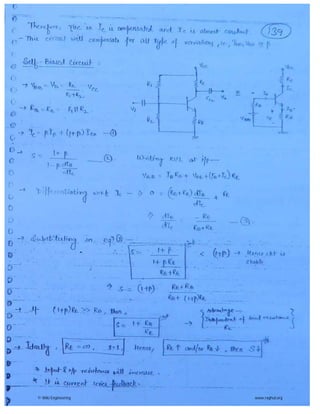 Therefore, rise in Ic is compensated and Ic is almost constant.
139
- This circuit will compensate for all type of variations, i.e., VBE, ICO & β
Self-Biased Circuit :
→ VBB = VB = R2 / (R1+R2) VCC
→ RB = R1 || R2
→ Ic = βIB + (1+β) ICO —①
→ S = (1+β) / (1-β dIB/dIc) —②
Writing KVL at i/p —
VBB = IB RB + VBE + (IB+Ic) RE
→ Differentiating w.r.t. Ic → 0 = (RB+RE) dIB/dIc + RE
⇒ dIB/dIc = -RE / (RB+RE) —③
→ Substituting in eq² ② —
S = (1+β) / (1 + βRE/(RE+RB)) < (1+β) → Hence ckt is stable
⇒ S = (1+β) (RB+RE) / (RB+(1+β)RE
→ If (1+β)RE >> RB, then,
S = 1 + RB/RE
Advantage —
Independent of load resistance Rc
→ Ideally, RE = ∞, S=1, Hence, RE ↑ and/or RB ↓, then S↓
→ Input & o/p resistance will increase.
* It is current series feedback.
© Wiki Engineering
www.raghul.org